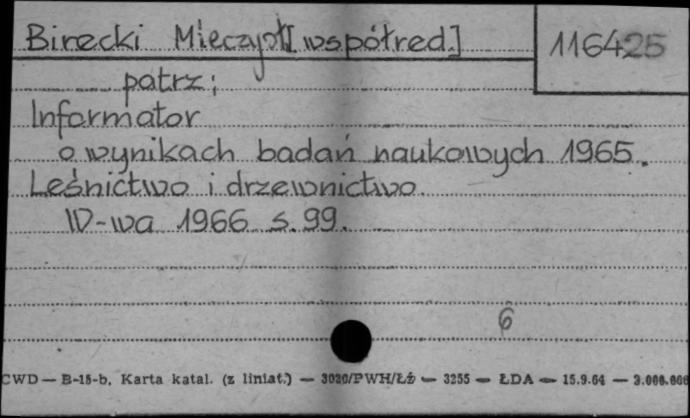 Birecki Mieczysł [współred.]
116425
patrz:
Informator
o wynikach badań naukowych 1965.
Leśnictwo i drzewnictwo.
W-wa 1966 s. 99.
6
CWD — B-15-b. Karta katal. (z liniat.) — 3020/PWH/Łź — 3255 — ŁDA — 15.9.64 — 3.000.000